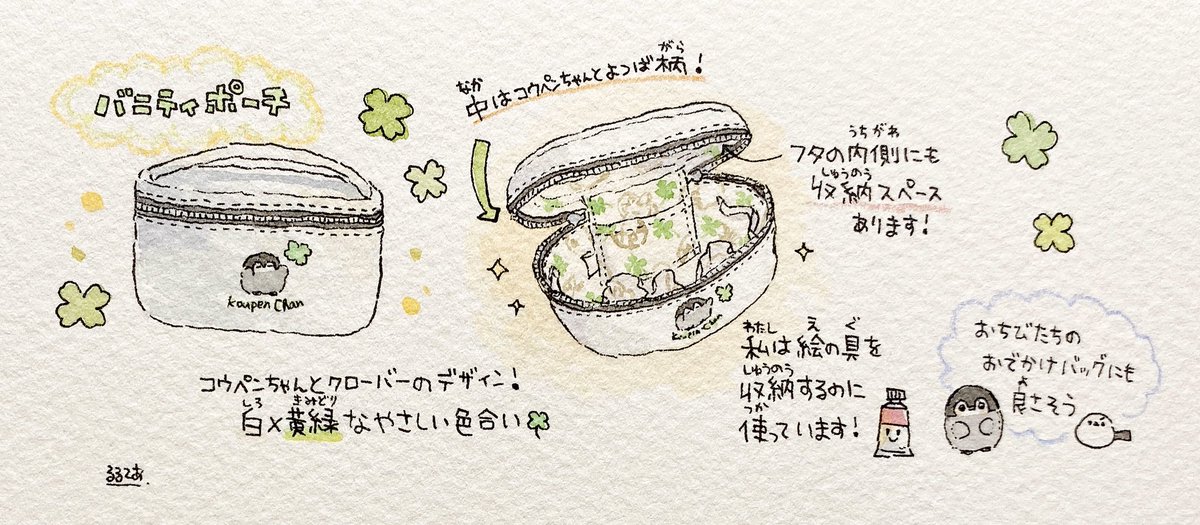 バニティポーチ
Koupen Chan
コウペンちゃんとクローバーのデザイン！
しろ きみどり
白×黄緑なやさしい色合い
るるてあ
なか がら
中はコウペンちゃんとよつば柄！
うちがわ
フタの内側にも
しゅうのう
収納スペース
あります！
Koupen Chan
わたし え ぐ
私は絵の具を
しゅうのう
収納するのに
つか
使っています！
おちびたちの
おでかけバッグにも
よ
良さそう